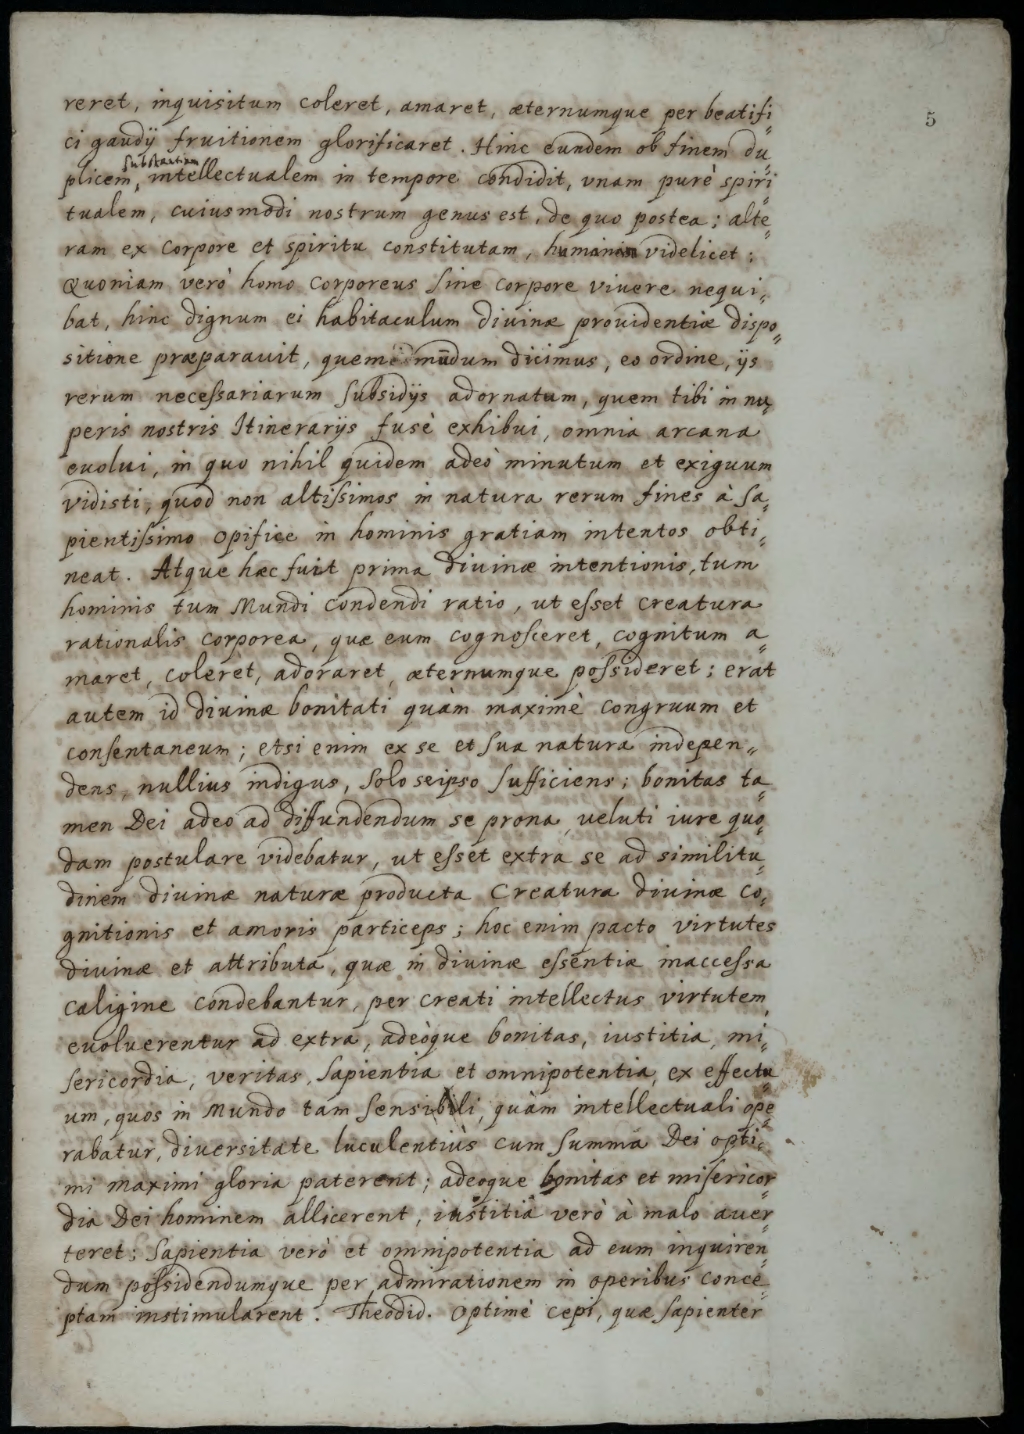 5
reret, inquisitum coleret, amaret, æternumque per beatifi„
ci gaudij fruitionem glorificaret. Hinc eundem ob finem du„
substantiam
plicem, intellectualem in tempore condidit, vnam purè spiri„
tualem, cuiusmodi nostrum genus est, de quo postea; alte„
ram ex corpore et spiritu constitutam, humanam videlicet;
Quoniam verò homo corporeus sine corpore viuere nequi„
bat, hinc dignum ei habitaculum diuinæ prouidentiæ dispo„
sitione præparauit, quem mūdum dicimus, eo ordine, ijs
rerum necessariarum subsidijs adornatum, quem tibi in nu„
peris nostris Itinerarijs fusè exhibui, omnia arcana
euolui, in quo nihil quidem adeò minutum et exiguum
vidisti, quod non altissimos in natura rerum fines à sa„
pientissimo opifice in hominis gratiam intentos obti„
neat. Atque hæc fuit prima diuinæ intentionis, tum
hominis tum Mundi condendi ratio, ut esset creatura
rationalis corporea, quæ eum cognosceret, cognitum a„
maret, coleret, adoraret, æternumque possideret; erat
autem id diuinæ bonitati quàm maximè congruum et
consentaneum; etsi enim ex se et sua natura indepen„
dens, nullius indigus, solo seipso sufficiens; bonitas ta„
men Dei adeo ad diffundendum se prona, veluti iure quo„
dam postulare videbatur, ut esset extra se ad similitu„
dinem diuinæ naturæ producta Creatura diuinæ co„
gnitionis et amoris particeps; hoc enim pacto virtutes
diuinæ et attributa, quæ in diuinæ essentiæ inaccessa
caligine condebantur, per creati intellectus virtutem
euoluerentur ad extra, adeòque bonitas, iustitia, mi„
sericordia, veritas, sapientia et omnipotentia, ex effectu„
um, quos in Mundo tam sensibili, quàm intellectuali ope„
rabatur, diuersitate luculentiùs cum summa Dei opti„
mi maximi gloria paterent; adeoque bonitas et misericor„
dia Dei hominem allicerent, iustitia verò à malo auer„
teret; sapientia verò et omnipotentia ad eum inquiren„
dum possidendumque per admirationem in operibus conce„
ptam instimularent. Theodid. Optimè cepi, quæ sapienter